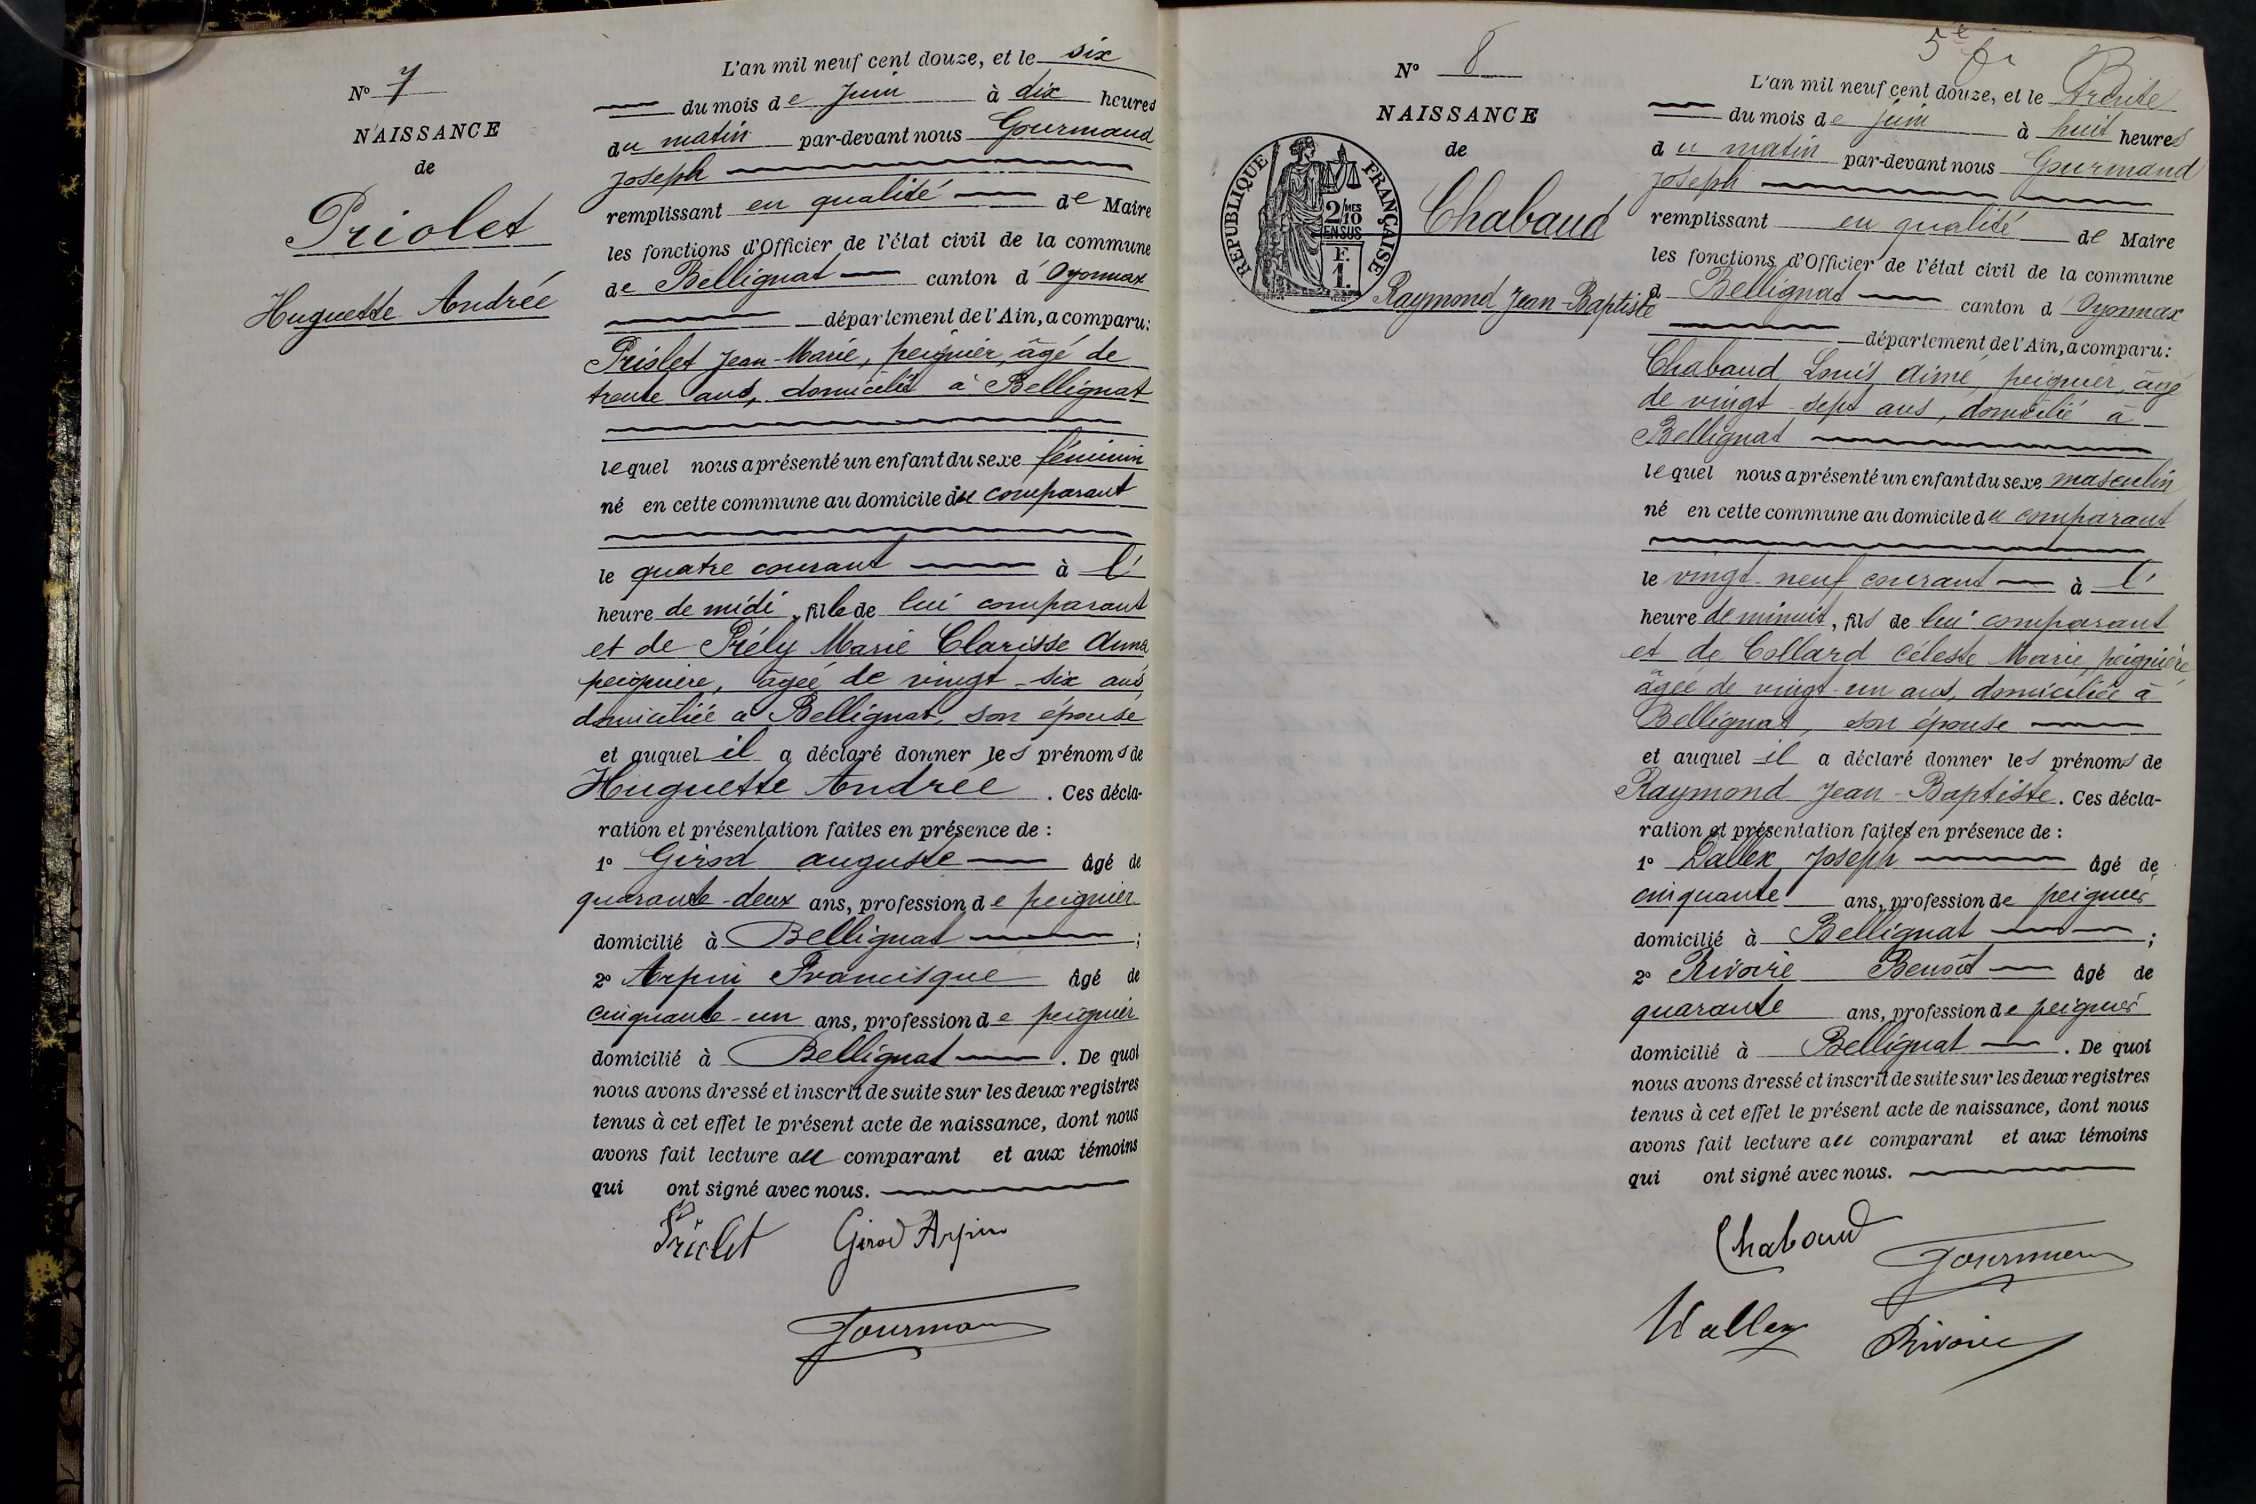 N° 7
NAISSANCE
de
Priolet
Huguette Andrée
L'an mil neuf cent douze, et le six
du mois de Juin à dix heures
du matin par-devant nous Gourmand
Joseph
remplissant en qualité de Maire
les fonctions d'Officier de l'état civil de la commune
de Bellignat canton d'Oyonnax
département de l'Ain, a comparu:
Priolet Jean-Marie, peignier, âgé de
trente ans, domicilié à Bellignat
lequel nous a présenté un enfant du sexe féminin
né en cette commune au domicile du comparant
le quatre courant à l'
heure de midi, fille de lui comparant
et de Prély Marie Clarisse Anna
peignière, âgée de vingt-six ans,
domiciliée à Bellignat, son épouse
et auquel il a déclaré donner les prénoms de
Huguette Andrée. Ces décla-
ration et présentation faites en présence de :
1° Girod Auguste âgé de
quarante-deux ans, profession de peignier
domicilié à Bellignat ;
2° Arpin Francisque âgé de
cinquante-un ans, profession de peignier
domicilié à Bellignat. De quoi
nous avons dressé et inscrit de suite sur les deux registres
tenus à cet effet le présent acte de naissance, dont nous
avons fait lecture au comparant et aux témoins
qui ont signé avec nous.
Priolet Girod Arpin
Gourmand
5e
N° 8
NAISSANCE
de
RÉPUBLIQUE FRANÇAISE
2/MES
10
EN SUS
F.
1.
Chabaud
Raymond Jean-Baptiste
L'an mil neuf cent douze, et le trente
du mois de juin à huit heures
du matin par-devant nous Gourmand
Joseph
remplissant en qualité de Maire
les fonctions d'Officier de l'état civil de la commune
d Bellignat canton d'Oyonnax
département de l'Ain, a comparu:
Chabaud Louis Aimé, peignier, âgé
de vingt-sept ans, domicilié à
Bellignat
lequel nous a présenté un enfant du sexe masculin
né en cette commune au domicile du comparant
le vingt-neuf courant à l'
heure de minuit, fils de lui comparant
et de Collard Céleste Marie, peignière
âgée de vingt-un ans, domiciliée à
Bellignat, son épouse
et auquel il a déclaré donner les prénoms de
Raymond Jean-Baptiste. Ces décla-
ration et présentation faites en présence de :
1° Dallex Joseph âgé de
cinquante ans, profession de peignier
domicilié à Bellignat ;
2° Rivoire Benoît âgé de
quarante ans, profession de peignier
domicilié à Bellignat. De quoi
nous avons dressé et inscrit de suite sur les deux registres
tenus à cet effet le présent acte de naissance, dont nous
avons fait lecture au comparant et aux témoins
qui ont signé avec nous.
Chaboud
Gourmand
Dallex Rivoire